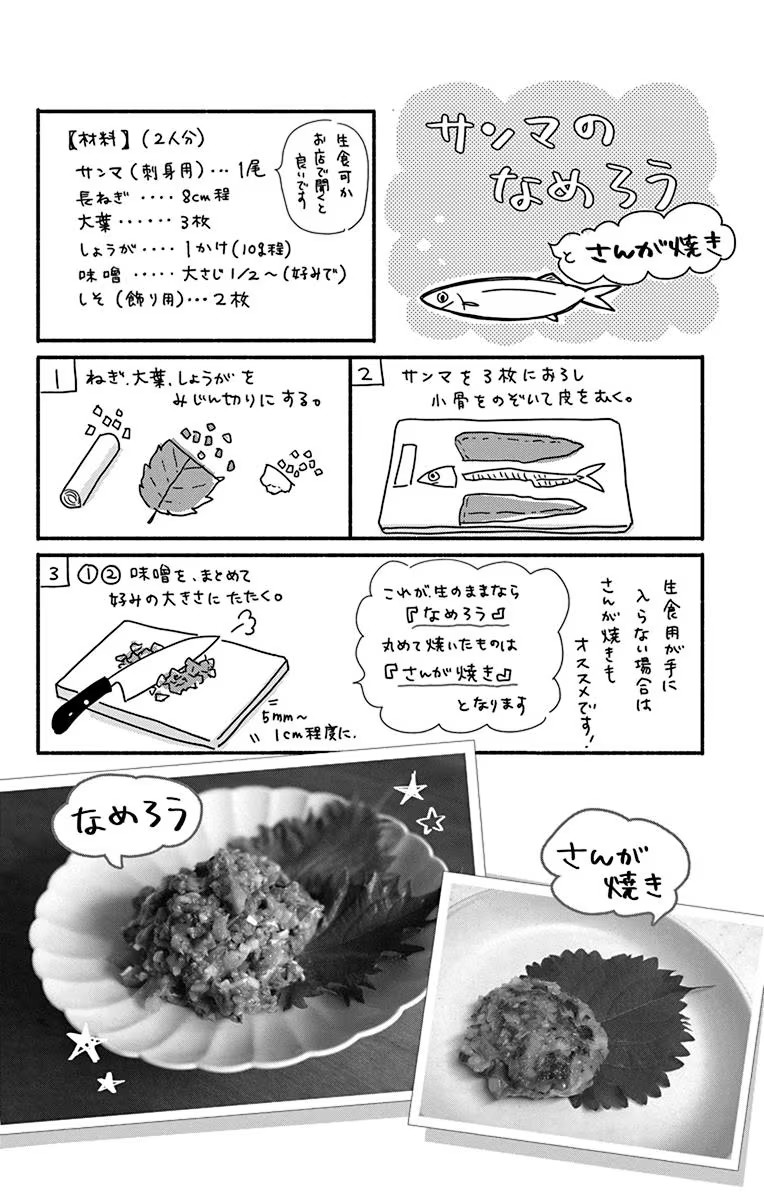 サンマの
なめろう
と さんが焼き
【材料】(2人分)
サンマ(刺身用)…1尾
長ねぎ‥‥8cm程
大葉‥‥‥3枚
しょうが‥‥1かけ(10g程)
味噌‥‥‥大さじ1/2~(好みで)
しそ(飾り用)…2枚
生食可か
お店で聞くと
良いです
1 ねぎ、大葉、しょうがを
みじん切りにする。
2 サンマを3枚におろし
小骨をのぞいて皮をむく。
3 ①② 味噌を、まとめて
好みの大きさにたたく。
5mm~
1cm程度に.
これが、生のままなら
『なめろう』
丸めて焼いたものは
『さんが焼き』
となります
生食用が手に
入らない場合は
さんが焼きも
オススメです!
なめろう
さんが
焼き